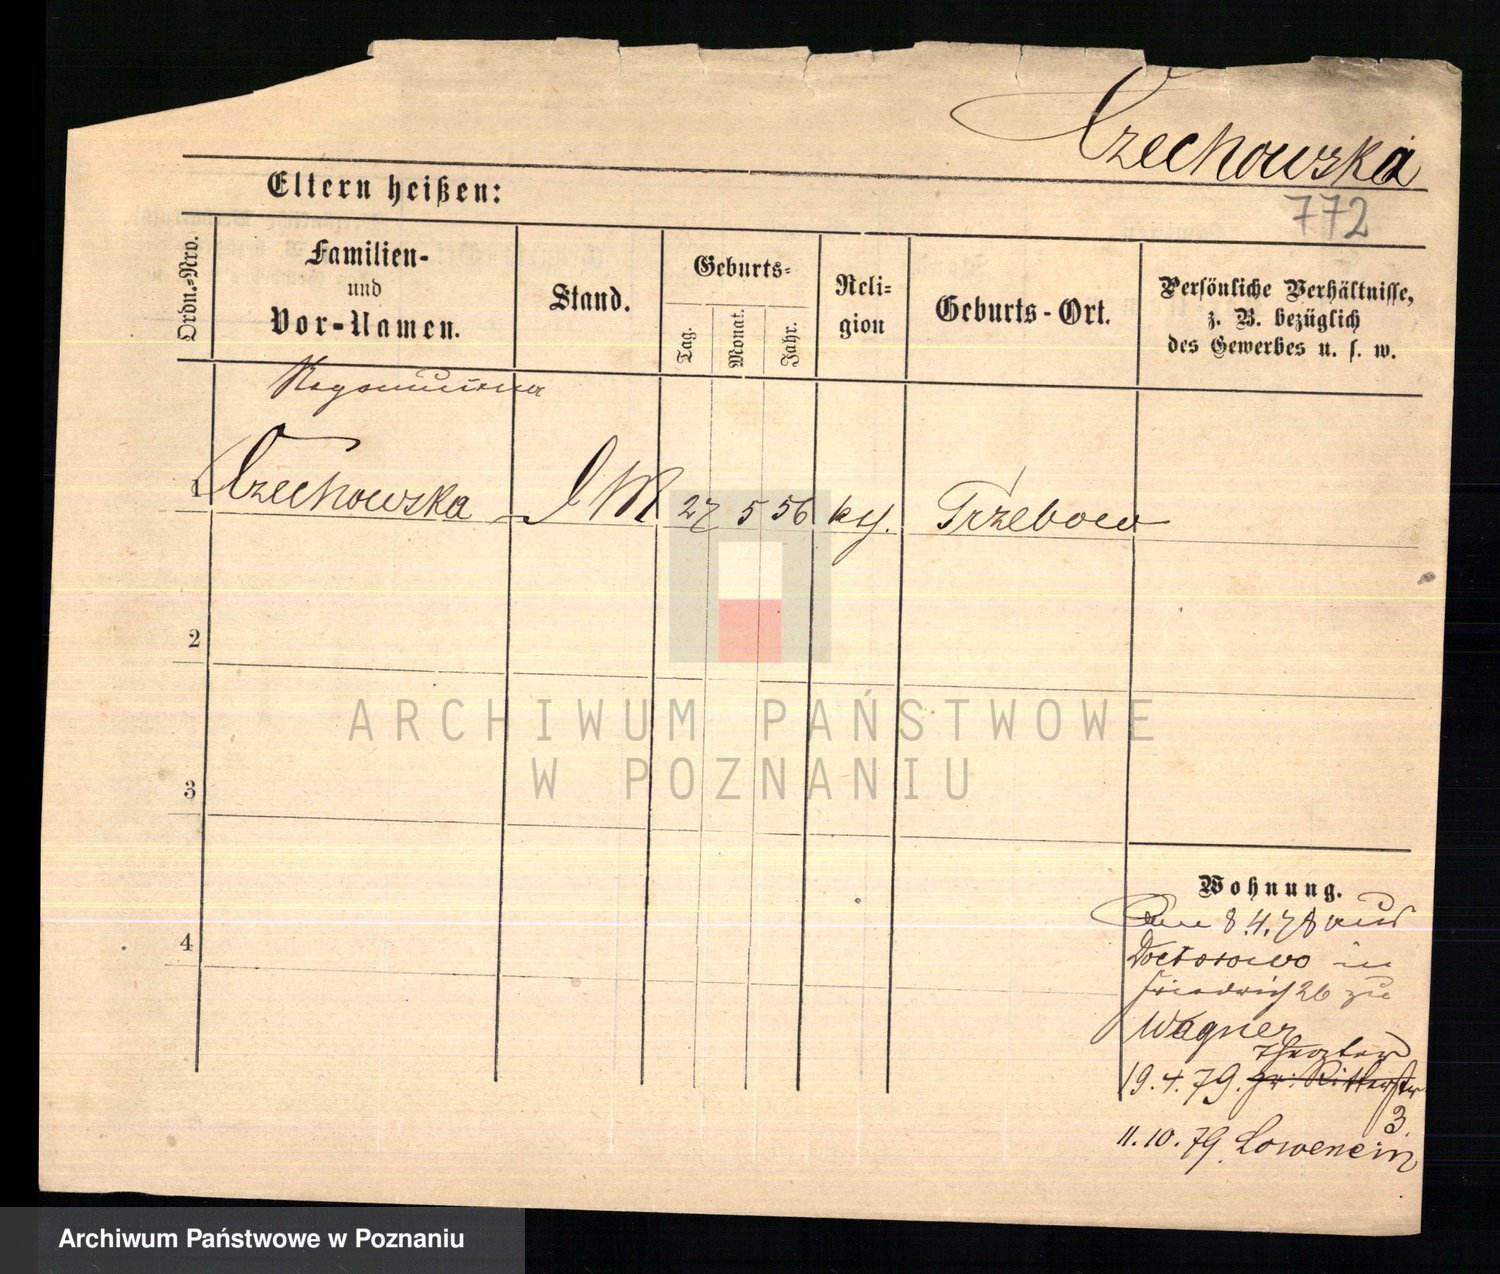 Czechowska
772
Eltern heißen:
Ordn.-Nro.
Familien-
und
Vor-Namen.
Stand.
Geburts-
Tag.
Monat.
Jahr.
Reli-
gion
Geburts-Ort.
Persönliche Verhältnisse,
z. B. bezüglich
des Gewerbes u. s. w.
1 Czechowska 27 5 56 Trzebow
2
3
4
ARCHIWUM PAŃSTWOWE
W POZNANIU
Wohnung.
8.4.78 aus
Doctorowo in
Friedrich 26 zu
Wagner
Theater
19.4.79. gr. Ritterstr
3.
11.10.79. Lowencin
Archiwum Państwowe w Poznaniu